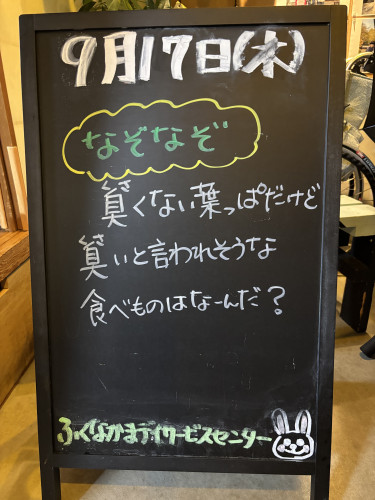 9月17日(木)
なぞなぞ
臭くない葉っぱだけど
臭いと言われそうな
食べものはなーんだ?
ふくなかまデイサービスセンター